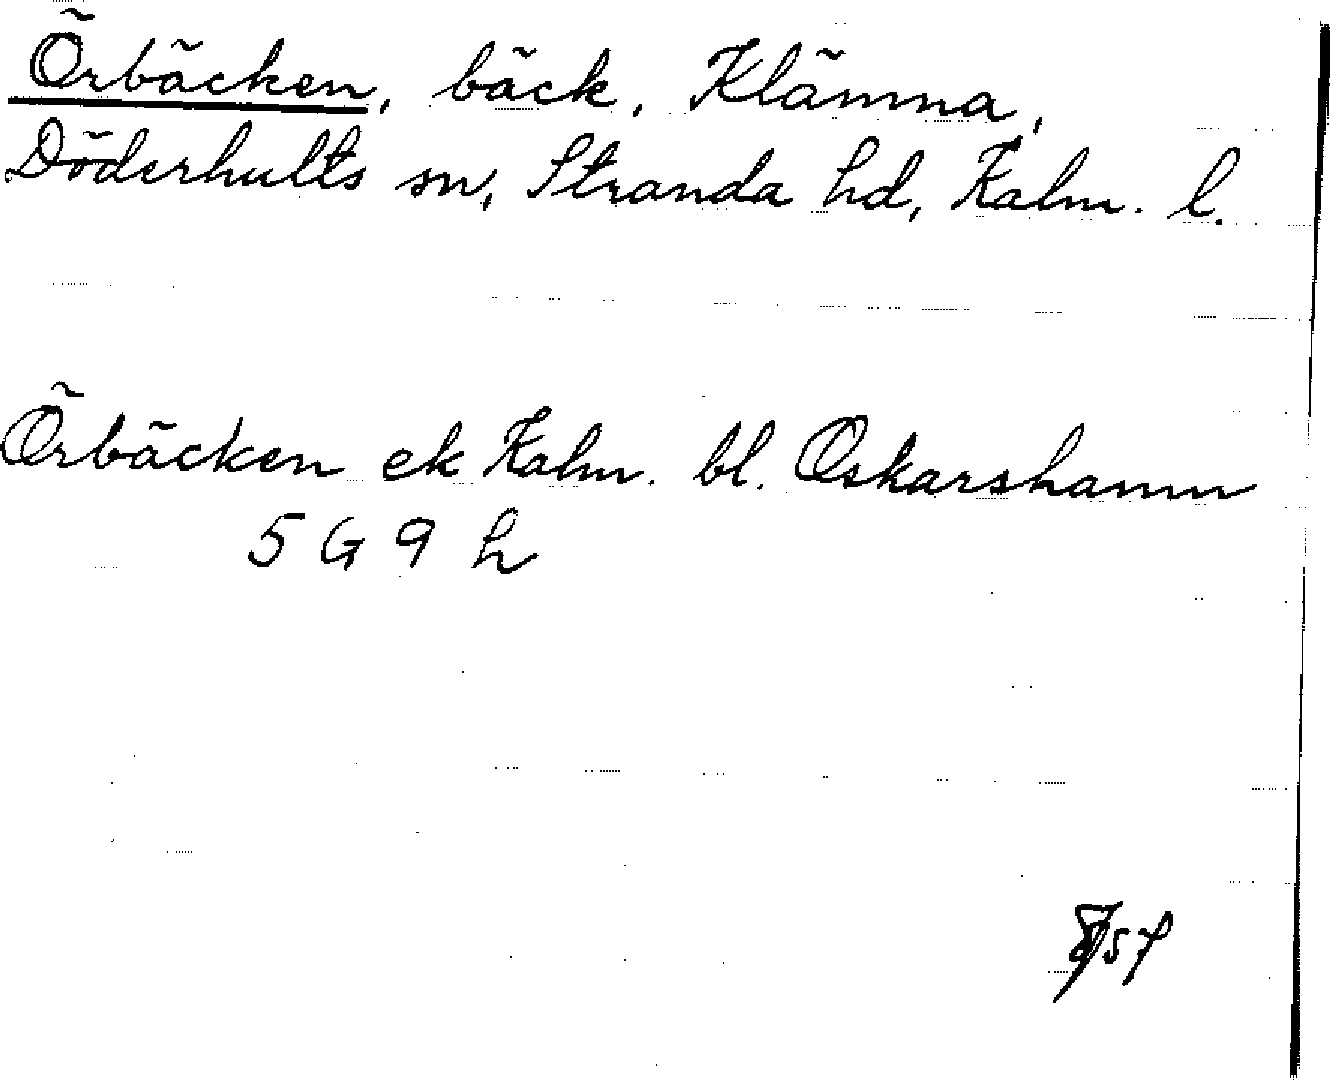 Örbäcken, bäck, Klämna,
Döderhults sn, Stranda hd, Kalm. l.
Örbäcken ek Kalm. bl. Oskarshamn
5 G 9 h